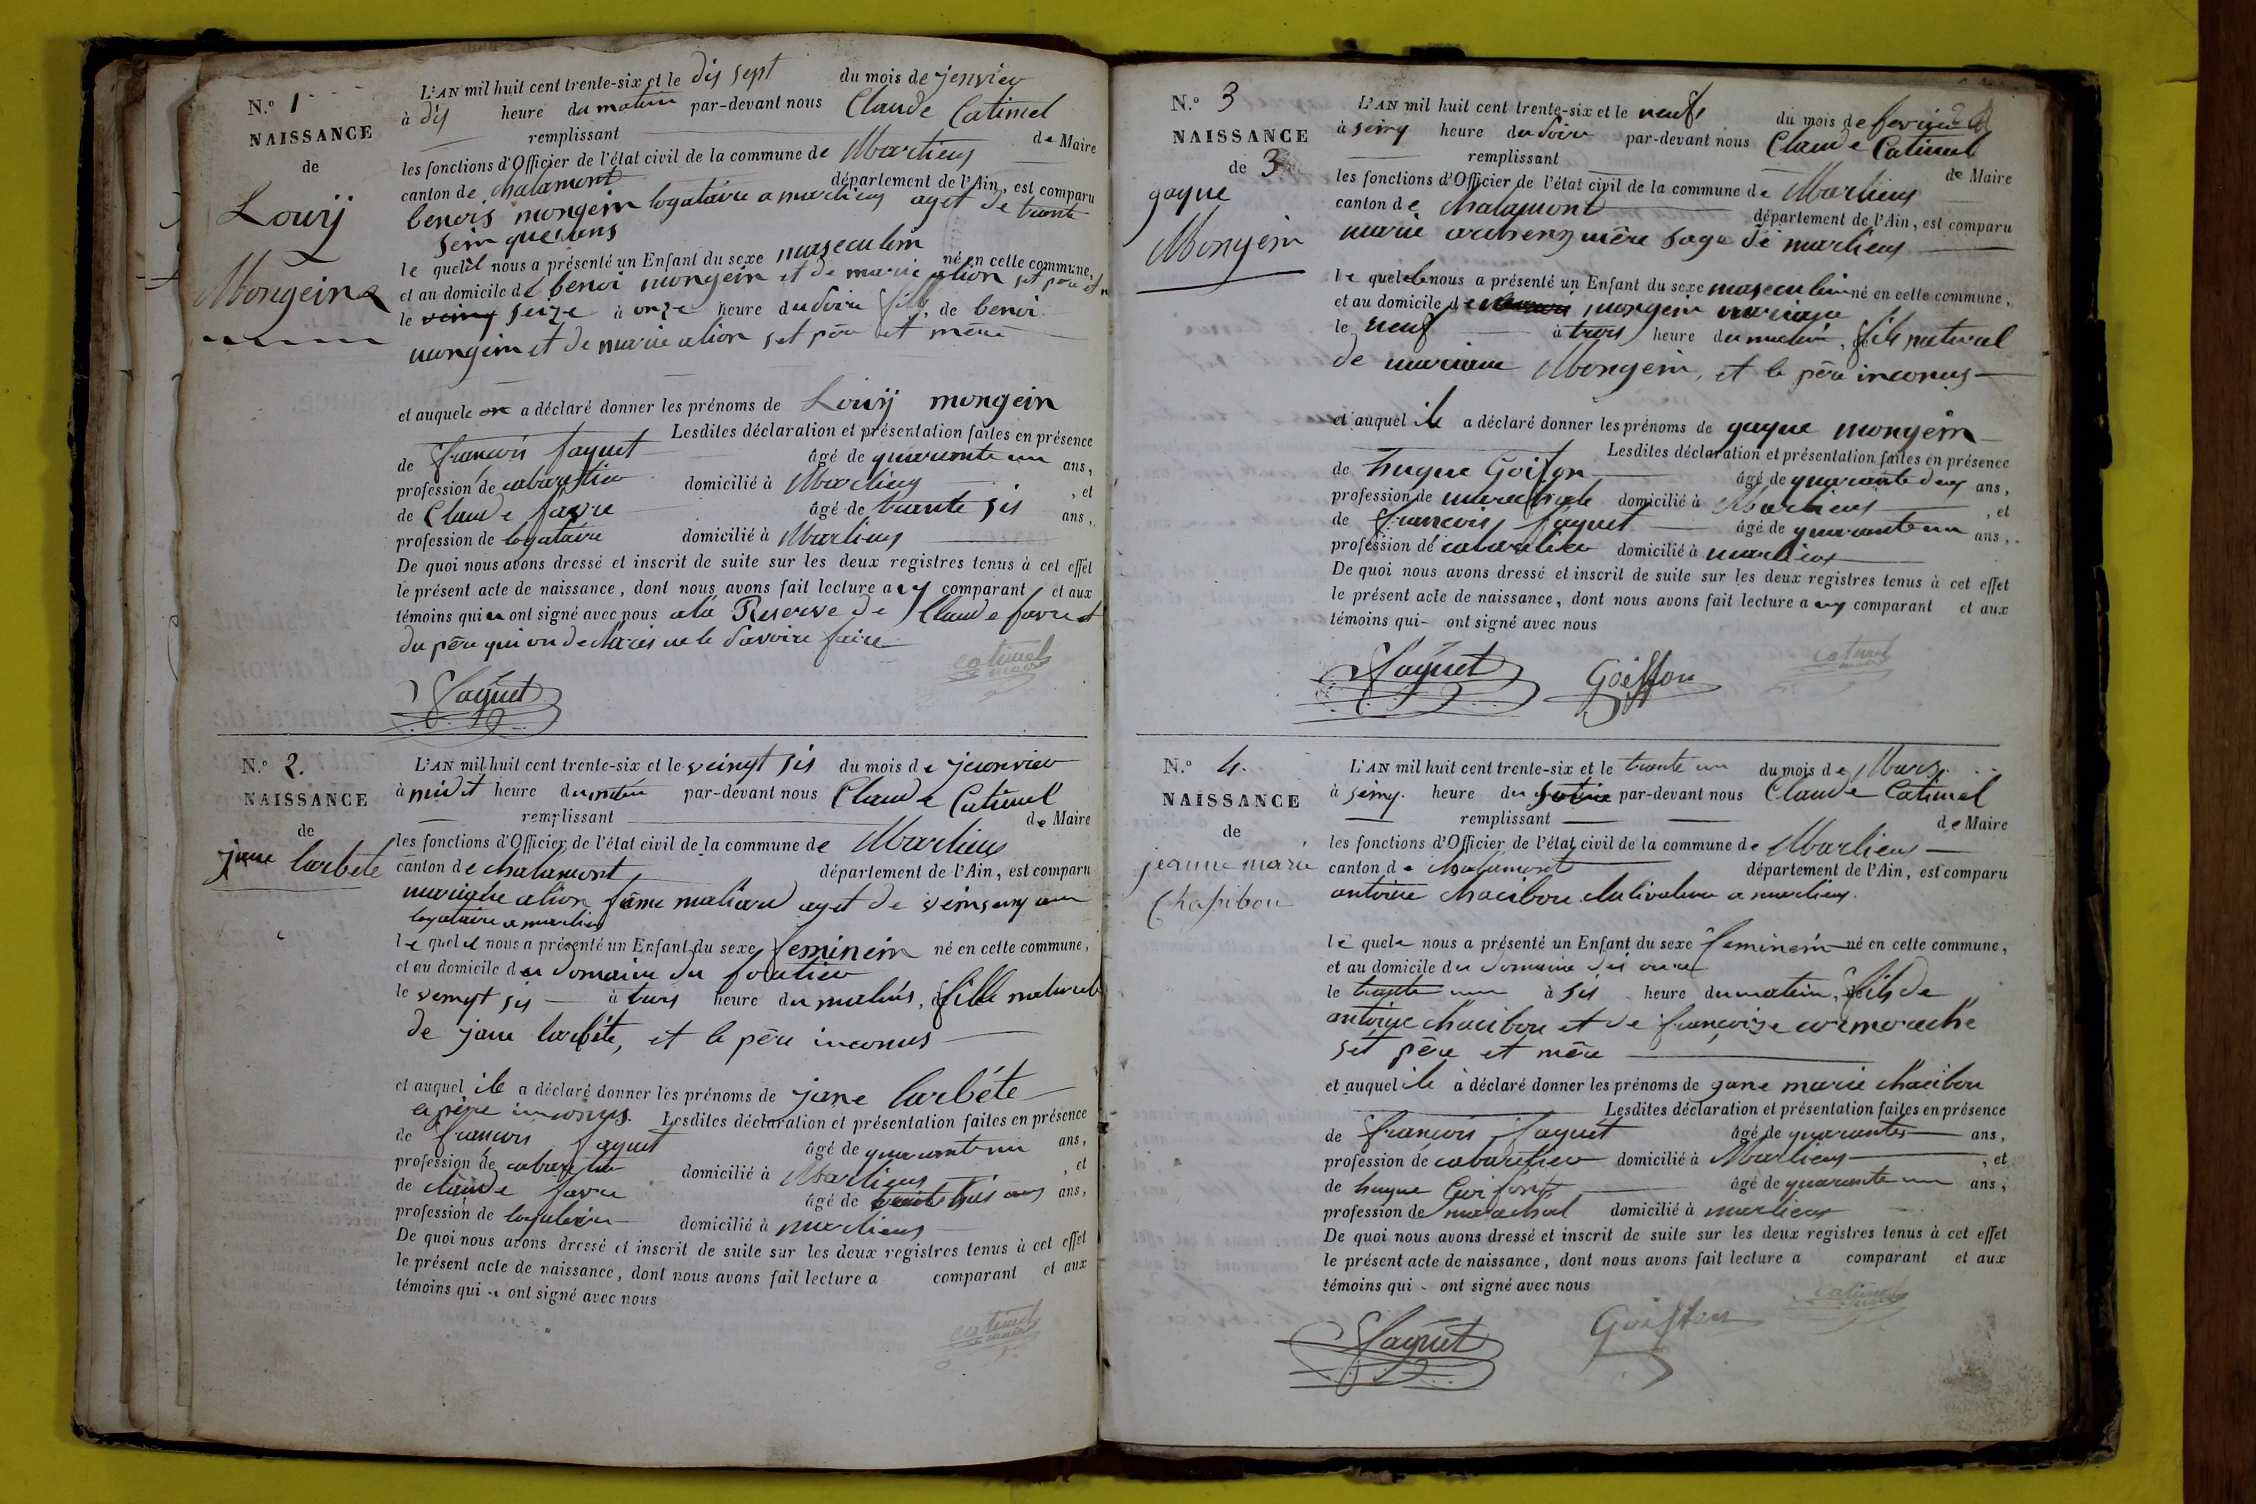 N.o 1
NAISSANCE
de
Louij
Mongein
L'AN mil huit cent trente-six et le dis sept du mois de jenvier
à dis heure du matin par-devant nous Claude Catimel
remplissant de Maire
les fonctions d'Officier de l'état civil de la commune de Marlieux
canton de chalamont département de l'Ain, est comparu
benois mongein logataire a marlieux aget de trante
seinque ans
le quel il nous a présenté un Enfant du sexe maseculin né en cette commune,
et au domicile de benoi mongein et de marie alion set père et
le seize à onze heure du soire fils de benoi
mongein et de marie alion set père et mère
et auquele on a déclaré donner les prénoms de Louij mongein
Lesdites déclaration et présentation faites en présence
de françois faquet âgé de quarante un ans,
profession de cabaretier domicilié à Marlieux , et
de Claude favre âgé de trante sis ans,
profession de logataire domicilié à Marlieux
De quoi nous avons dressé et inscrit de suite sur les deux registres tenus à cet effet
le présent acte de naissance, dont nous avons fait lecture a comparant et aux
témoins qui ont signé avec nous a la Reserve de Claude favre et
du père qui on declares ne le savoire faire
catimel
maire
faquet
N.o 2.
NAISSANCE
de
jane barbete
L'AN mil huit cent trente-six et le veingt sis du mois de jeanvier
à midit heure du matin par-devant nous Claude Catimel
remplissant de Maire
les fonctions d'Officier de l'état civil de la commune de Marlieux
canton de chalamont département de l'Ain, est comparu
mariane alion fame maliard aget de ans
logataire a marlieux
le quel il nous a présenté un Enfant du sexe feminein né en cette commune,
et au domicile du domaine du
le veingt sis à trois heure du matins, fille naturele
de jane barbéte, et le père inconus
et auquel ile a déclaré donner les prénoms de jane barbéte
le père inconus. Lesdites déclaration et présentation faites en présence
de françois faquet âgé de quarante un ans,
profession de cabaretier domicilié à Marlieux , et
de claude favre âgé de trante sis ans ans,
profession de logataire domicilié à marlieux
De quoi nous avons dressé et inscrit de suite sur les deux registres tenus à cet effet
le présent acte de naissance, dont nous avons fait lecture a comparant et aux
témoins qui ont signé avec nous
catimel
maire
N.o 3
NAISSANCE
de 3
gaque
Mongein
L'AN mil huit cent trente-six et le neufs du mois de fevrier
à seinq heure du soire par-devant nous Claude Catimel
remplissant de Maire
les fonctions d'Officier de l'état civil de la commune de Marlieux
canton de chalamont département de l'Ain, est comparu
marie mère sage de marlieux
le quele nous a présenté un Enfant du sexe maseculin né en cette commune,
et au domicile de mongein mariane
le neuf à trois heure du matin, fils naturel
de mariane Mongein, et le père inconus
et auquel ile a déclaré donner les prénoms de gaque mongein
Lesdites déclaration et présentation faites en présence
de hugue Goifon âgé de quarante deux ans,
profession de marechale domicilié à Marlieux , et
de françois faquet âgé de quarante un ans,
profession de cabaretier domicilié à marlieux
De quoi nous avons dressé et inscrit de suite sur les deux registres tenus à cet effet
le présent acte de naissance, dont nous avons fait lecture a comparant et aux
témoins qui ont signé avec nous
catimel
maire
faquet Goiffon
N.o 4.
NAISSANCE
de
jeanne marie
Chassibou
L'AN mil huit cent trente-six et le trante un du mois de Mars
à seinq. heure du par-devant nous Claude Catimel
remplissant de Maire
les fonctions d'Officier de l'état civil de la commune de Marlieux
canton de chalamont département de l'Ain, est comparu
antoine chacibou cultivateur a marlieux.
le quele nous a présenté un Enfant du sexe feminein né en cette commune,
et au domicile du domaine des
le trante un à sis heure du matin, fils de
antoine chacibou et de françoise cormorache
set père et mère
et auquel ile a déclaré donner les prénoms de gane marie chacibou
Lesdites déclaration et présentation faites en présence
de françois faquet âgé de quarante ans,
profession de cabaretier domicilié à Marlieux , et
de hugue Goifon âgé de quarante un ans,
profession de marechal domicilié à marlieux
De quoi nous avons dressé et inscrit de suite sur les deux registres tenus à cet effet
le présent acte de naissance, dont nous avons fait lecture a comparant et aux
témoins qui ont signé avec nous
catimel
maire
faquet Goiffon